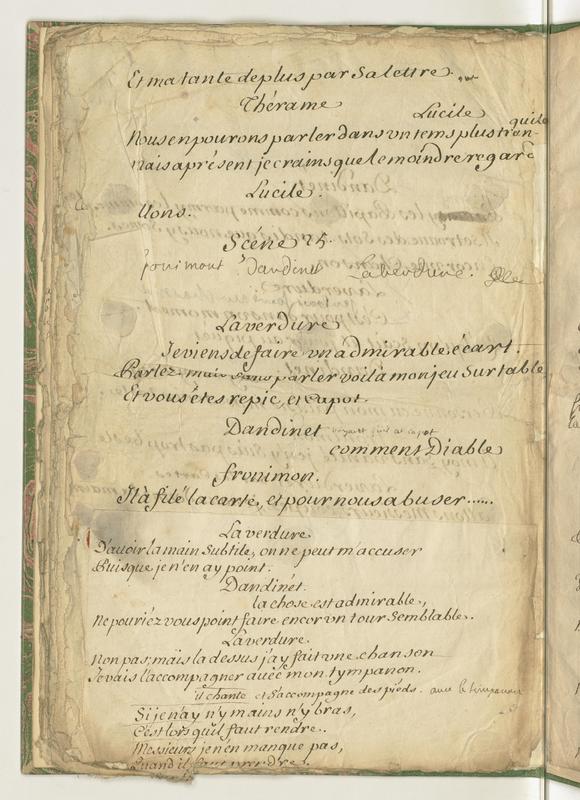 Et ma tante de plus par sa lettre.
Thérame
Lucile
Nous en pourons parler dans vn tems plus tran- quile
Mais aprésent je crains que le moindre regard
Lucile.
llons.
Scéne 25.
fronimont Dandinet Laverdure.
Laverdure
Je viens de faire vn admirable écart.
Parlez mais sans parler voilà mon jeu sur table
Et vous étes repic, et capot.
Dandinet voyant qu'il est capot
comment Diable
fronimon.
Il à filé la carte, et pour nous abuser......
Laverdure.
D'auoir la main subtile, on ne peut m'accuser
Puisque je n'en ay point.
Dandinet.
la chose est admirable,
Ne pouriéz vous point faire encor vn tour semblable.
Laverdure.
Non pas; mais la dessus j'ay fait vne chanson
Je vais l'accompagner auéc mon tympanon.
il chante et s'accompagne des pieds. avec le timpanon
Si je n'ay n'y mains n'y bras,
C'est lors qu'il faut rendre.
Messieurs je n'en manque pas,
Quand il faut prendre.